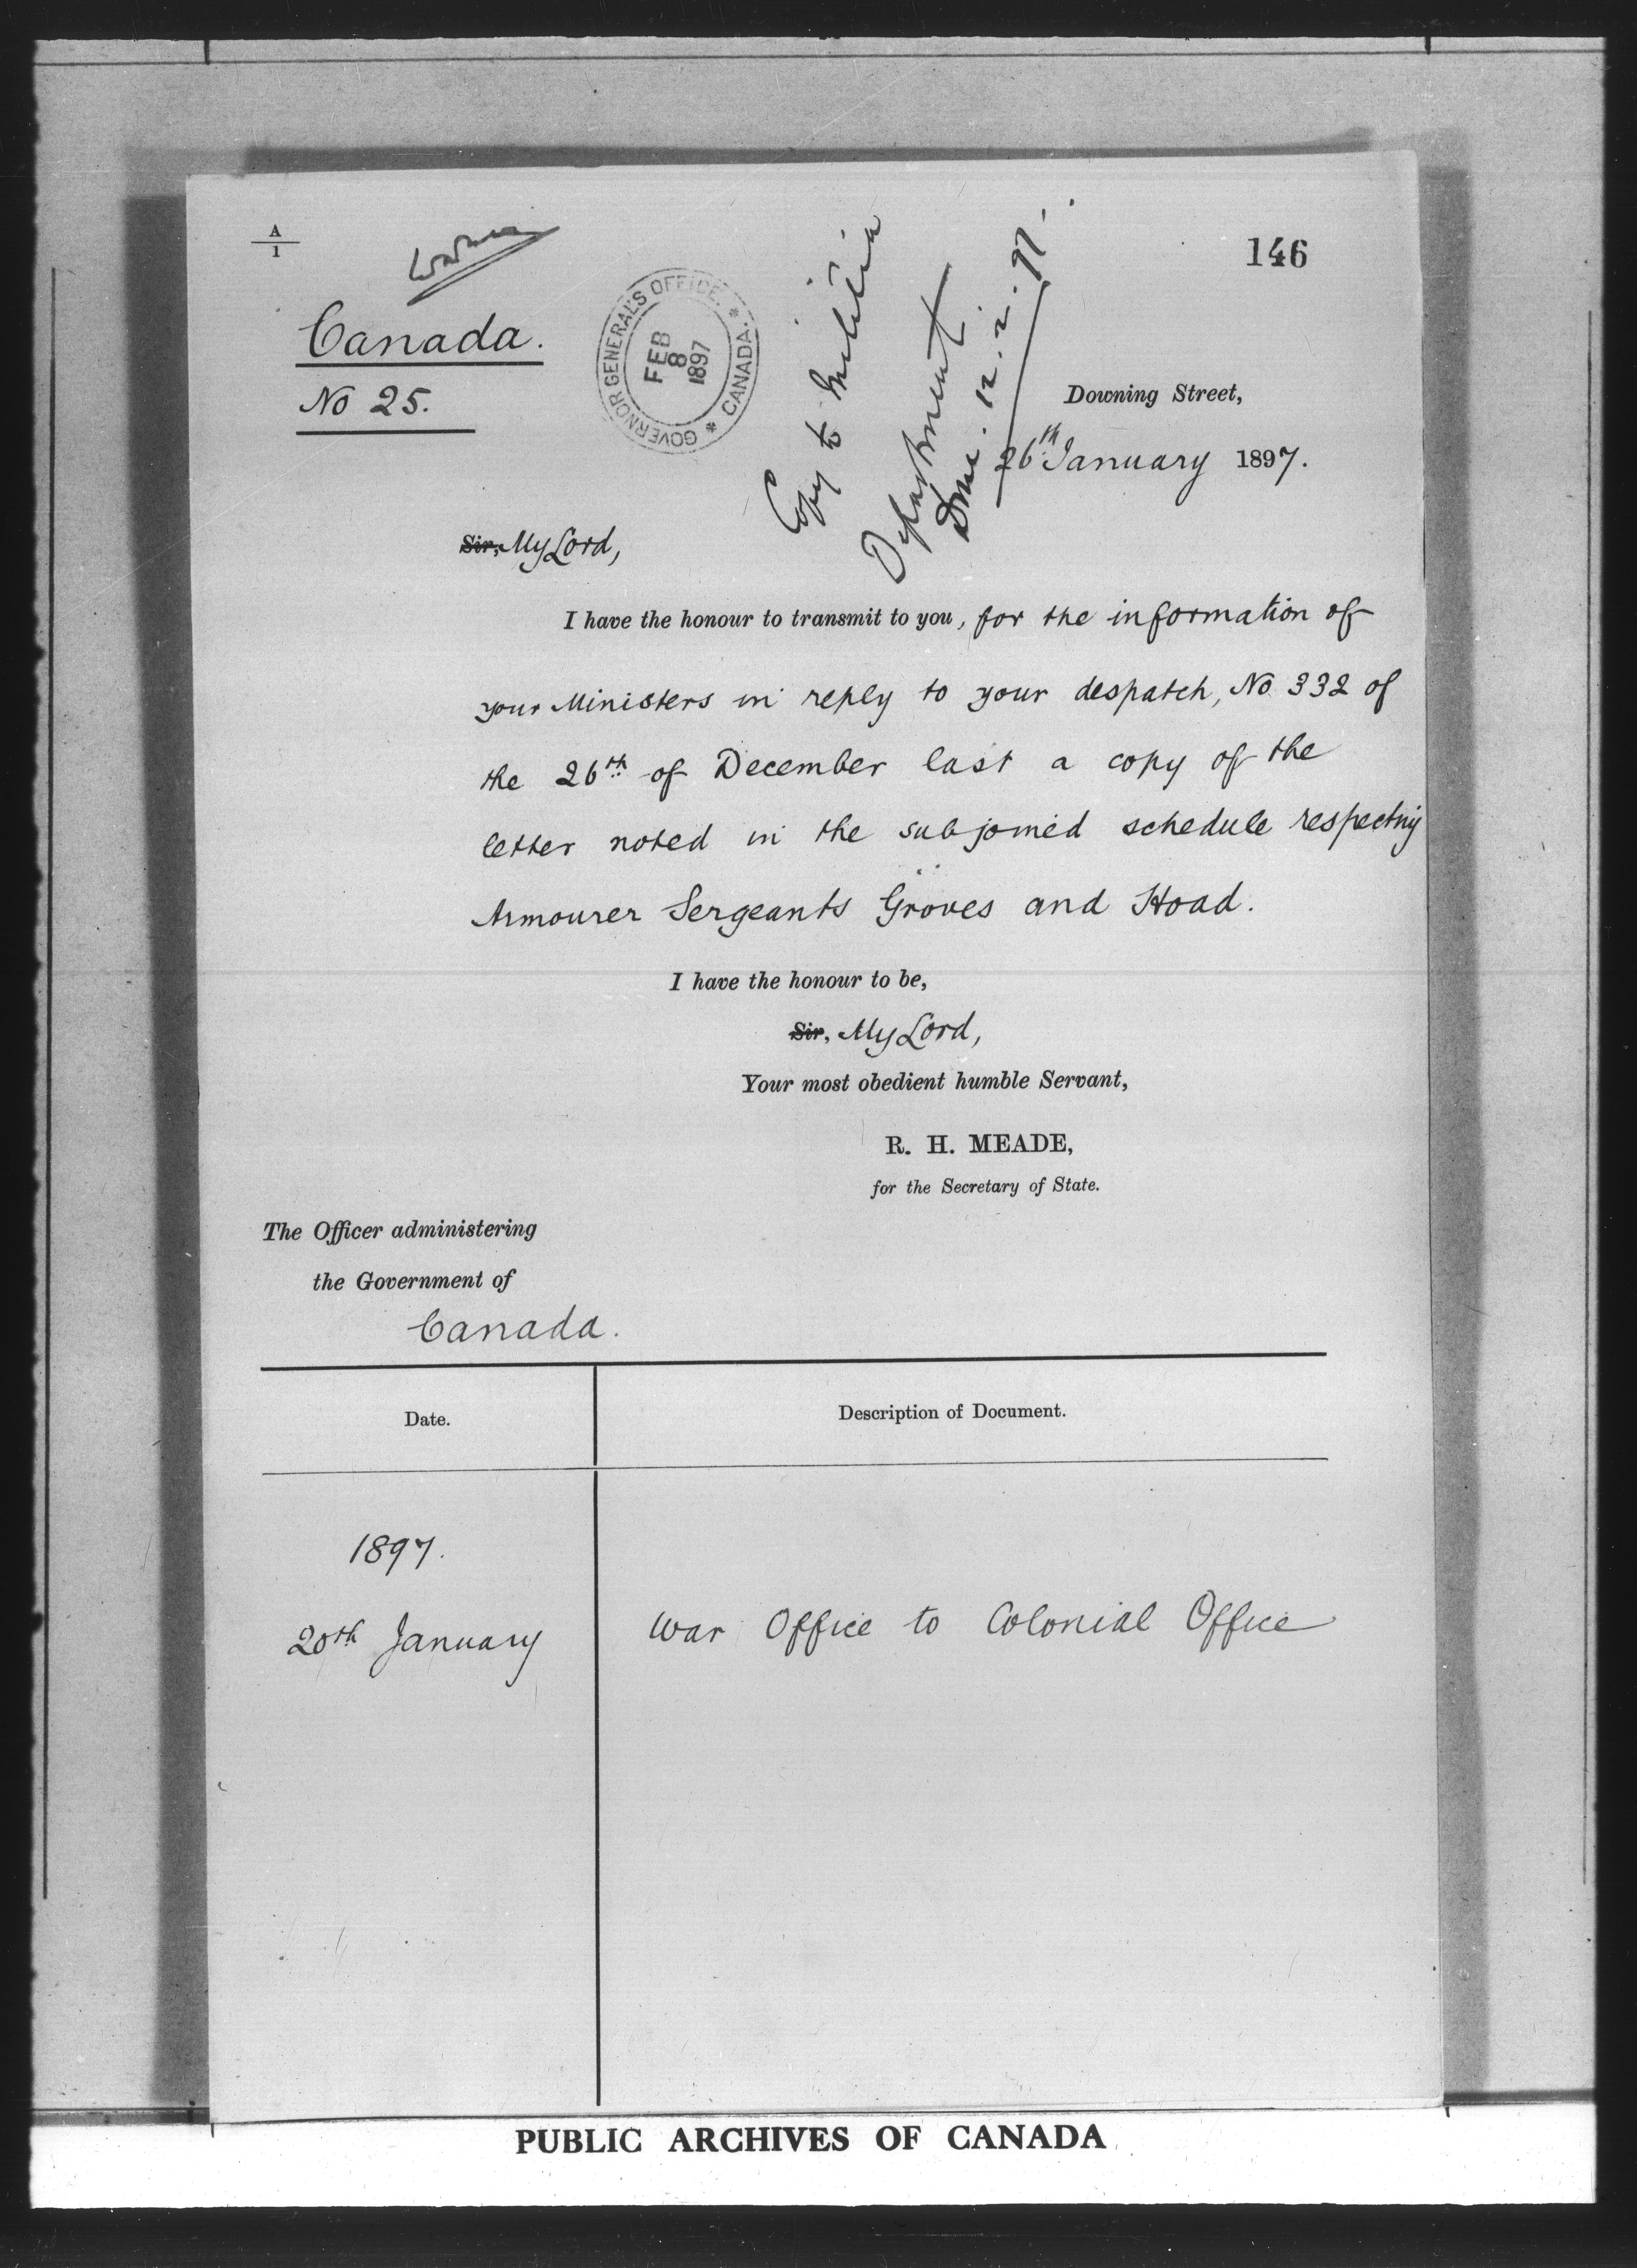 A
1
146
Canada.
No 25.
GOVERNOR GENERAL'S OFFICE. * CANADA. *
FEB
8
1897
Copy to Militia
Department
Done. 12. 2. 97.
Downing Street,
26th January 1897.
Sir, My Lord,
I have the honour to transmit to you, for the information of
your Ministers in reply to your despatch, No. 332 of
the 26th of December last a copy of the
letter noted in the subjoined schedule respecting
Armourer Sergeants Groves and Hoad.
I have the honour to be,
Sir, My Lord,
Your most obedient humble Servant,
R. H. MEADE,
for the Secretary of State.
The Officer administering
the Government of
Canada.
Date.
Description of Document.
1897.
20th January
War Office to Colonial Office
PUBLIC ARCHIVES OF CANADA